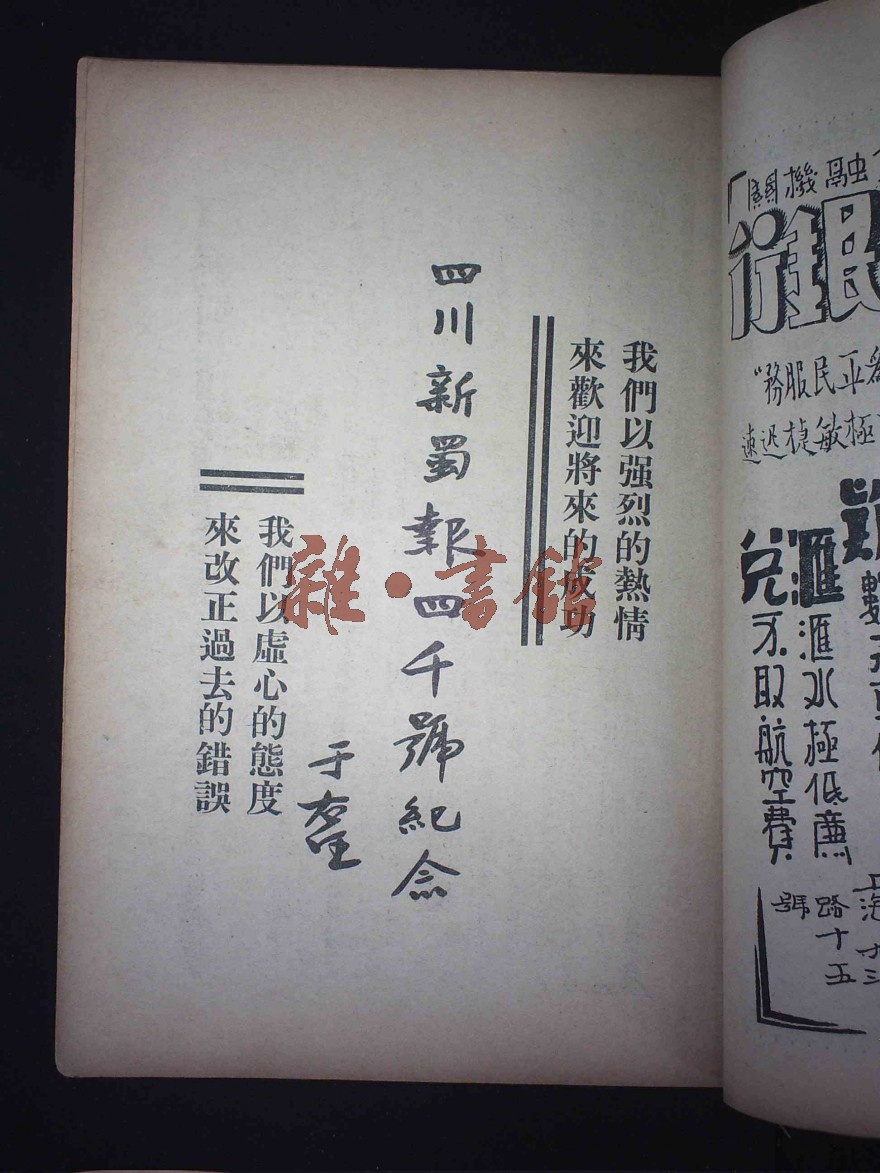 我們以强烈的熱情
來歡迎將來的成功
四川新蜀報四千號紀念
于
我們以虛心的態度
來改正過去的錯誤
雜·書館
「關機融
行銀
務服民平
速迅捷敏極
匯兌
匯水極低廉
不取航空費
上海
路十五
號